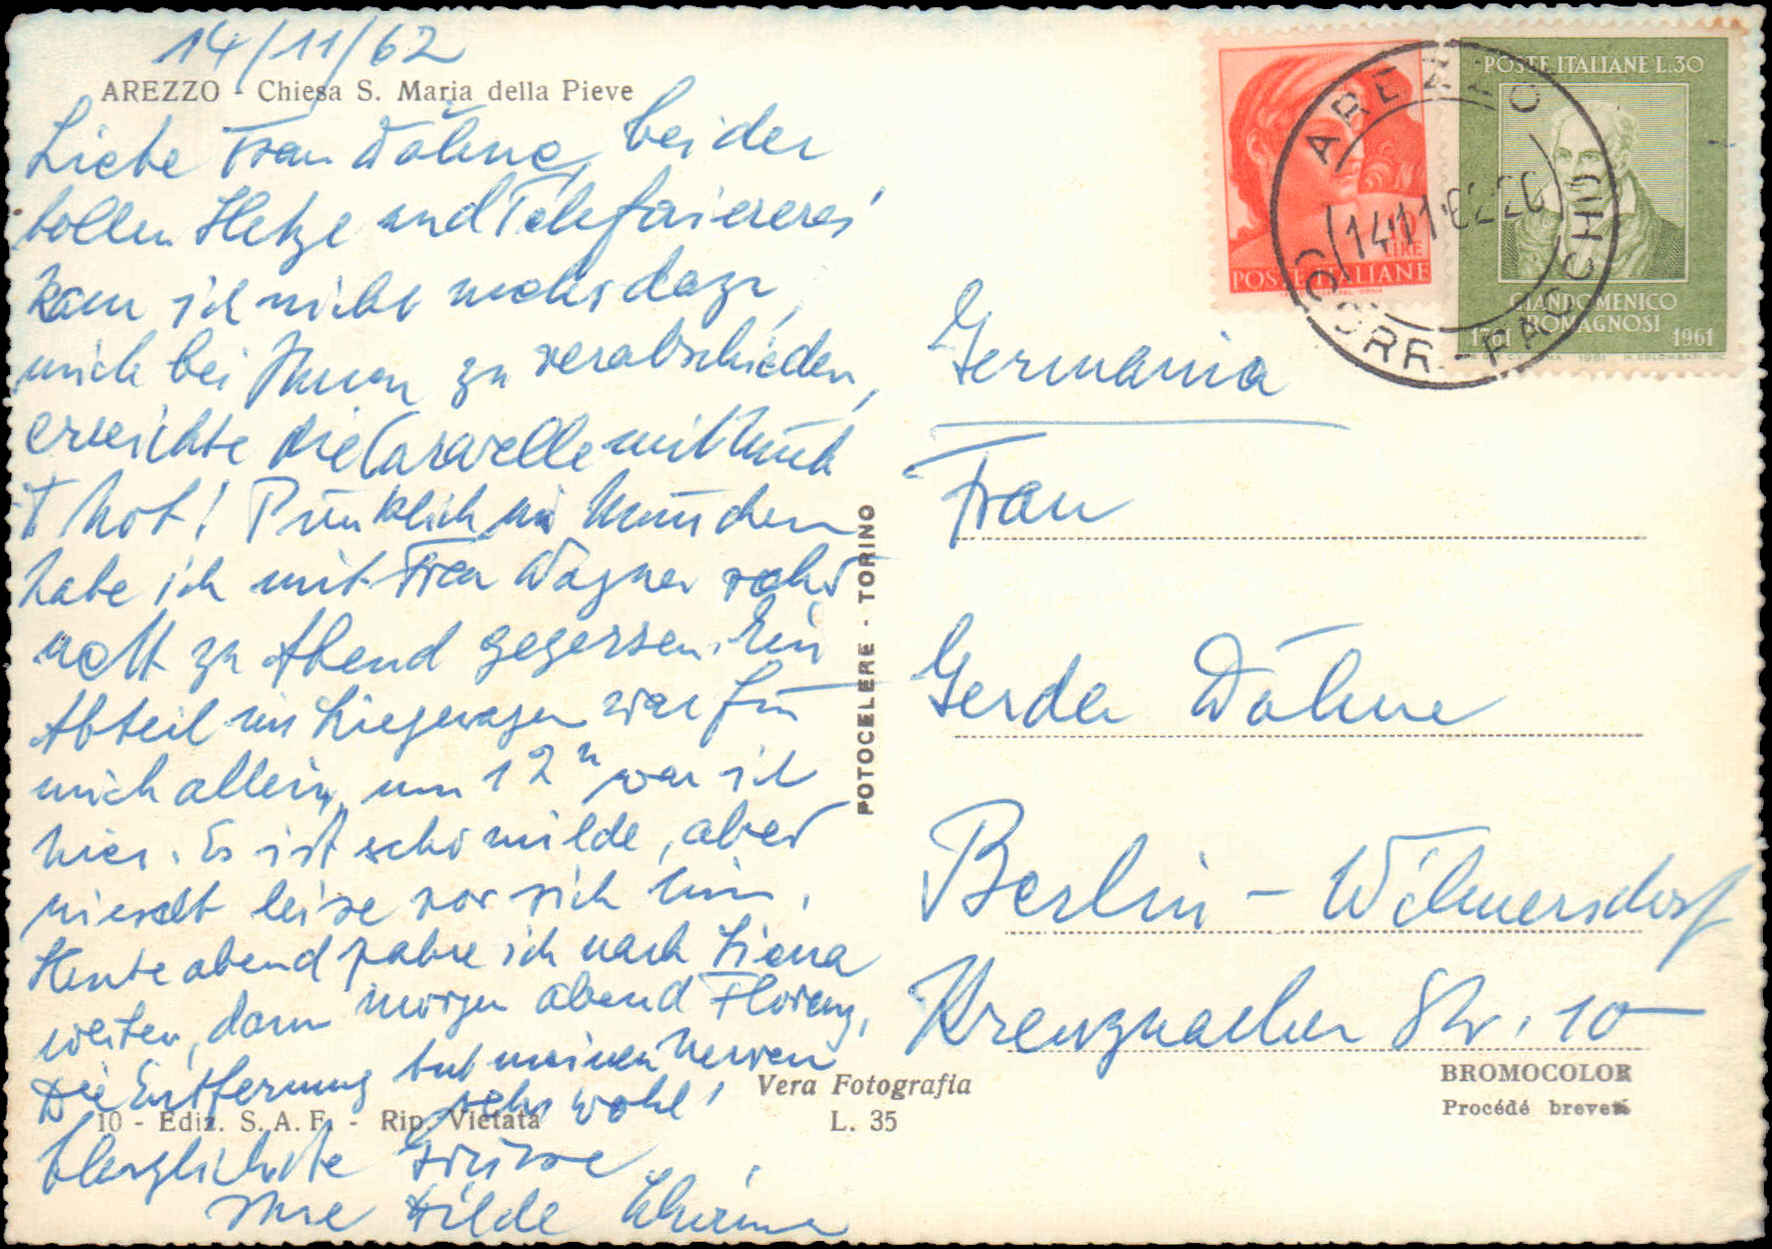 14/11/62
AREZZO - Chiesa S. Maria della Pieve
Liebe Frau Dähne, bei der
tollen Hetze und Telefoniererei
kam ich nicht mehr dazu,
mich bei Ihnen zu verabschieden,
erreichte die Caravelle mit Müh
+ Not! Pünklich in München
habe ich mit Frau Wagner sehr
nett zu Abend gegessen. Ein
Abteil im Liegewagen war für
mich allein, um 12 h war ich
hier. Es ist sehr milde, aber
nieselt leise vor sich hin.
Heute abend fahre ich nach Siena
weiter, dann morgen abend Florenz.
Die Entfernung tut meinen Nerven
sehr wohl!
Herzlichste Grüsse
Ihre Hilde
10 - Ediz. S. A. F. - Rip. Vietata
Vera Fotografia
L. 35
FOTOCELERE - TORINO
POSTE ITALIANE
LIRE
POSTE ITALIANE L.30
GIANDOMENICO
ROMAGNOSI
1761 1961
AREZZO
14.11.62.20
CORR.-PACCHI
Germania
Frau
Gerda Dähne
Berlin - Wilmersdorf
Kreuznacher Str. 10
BROMOCOLOR
Procédé breveté